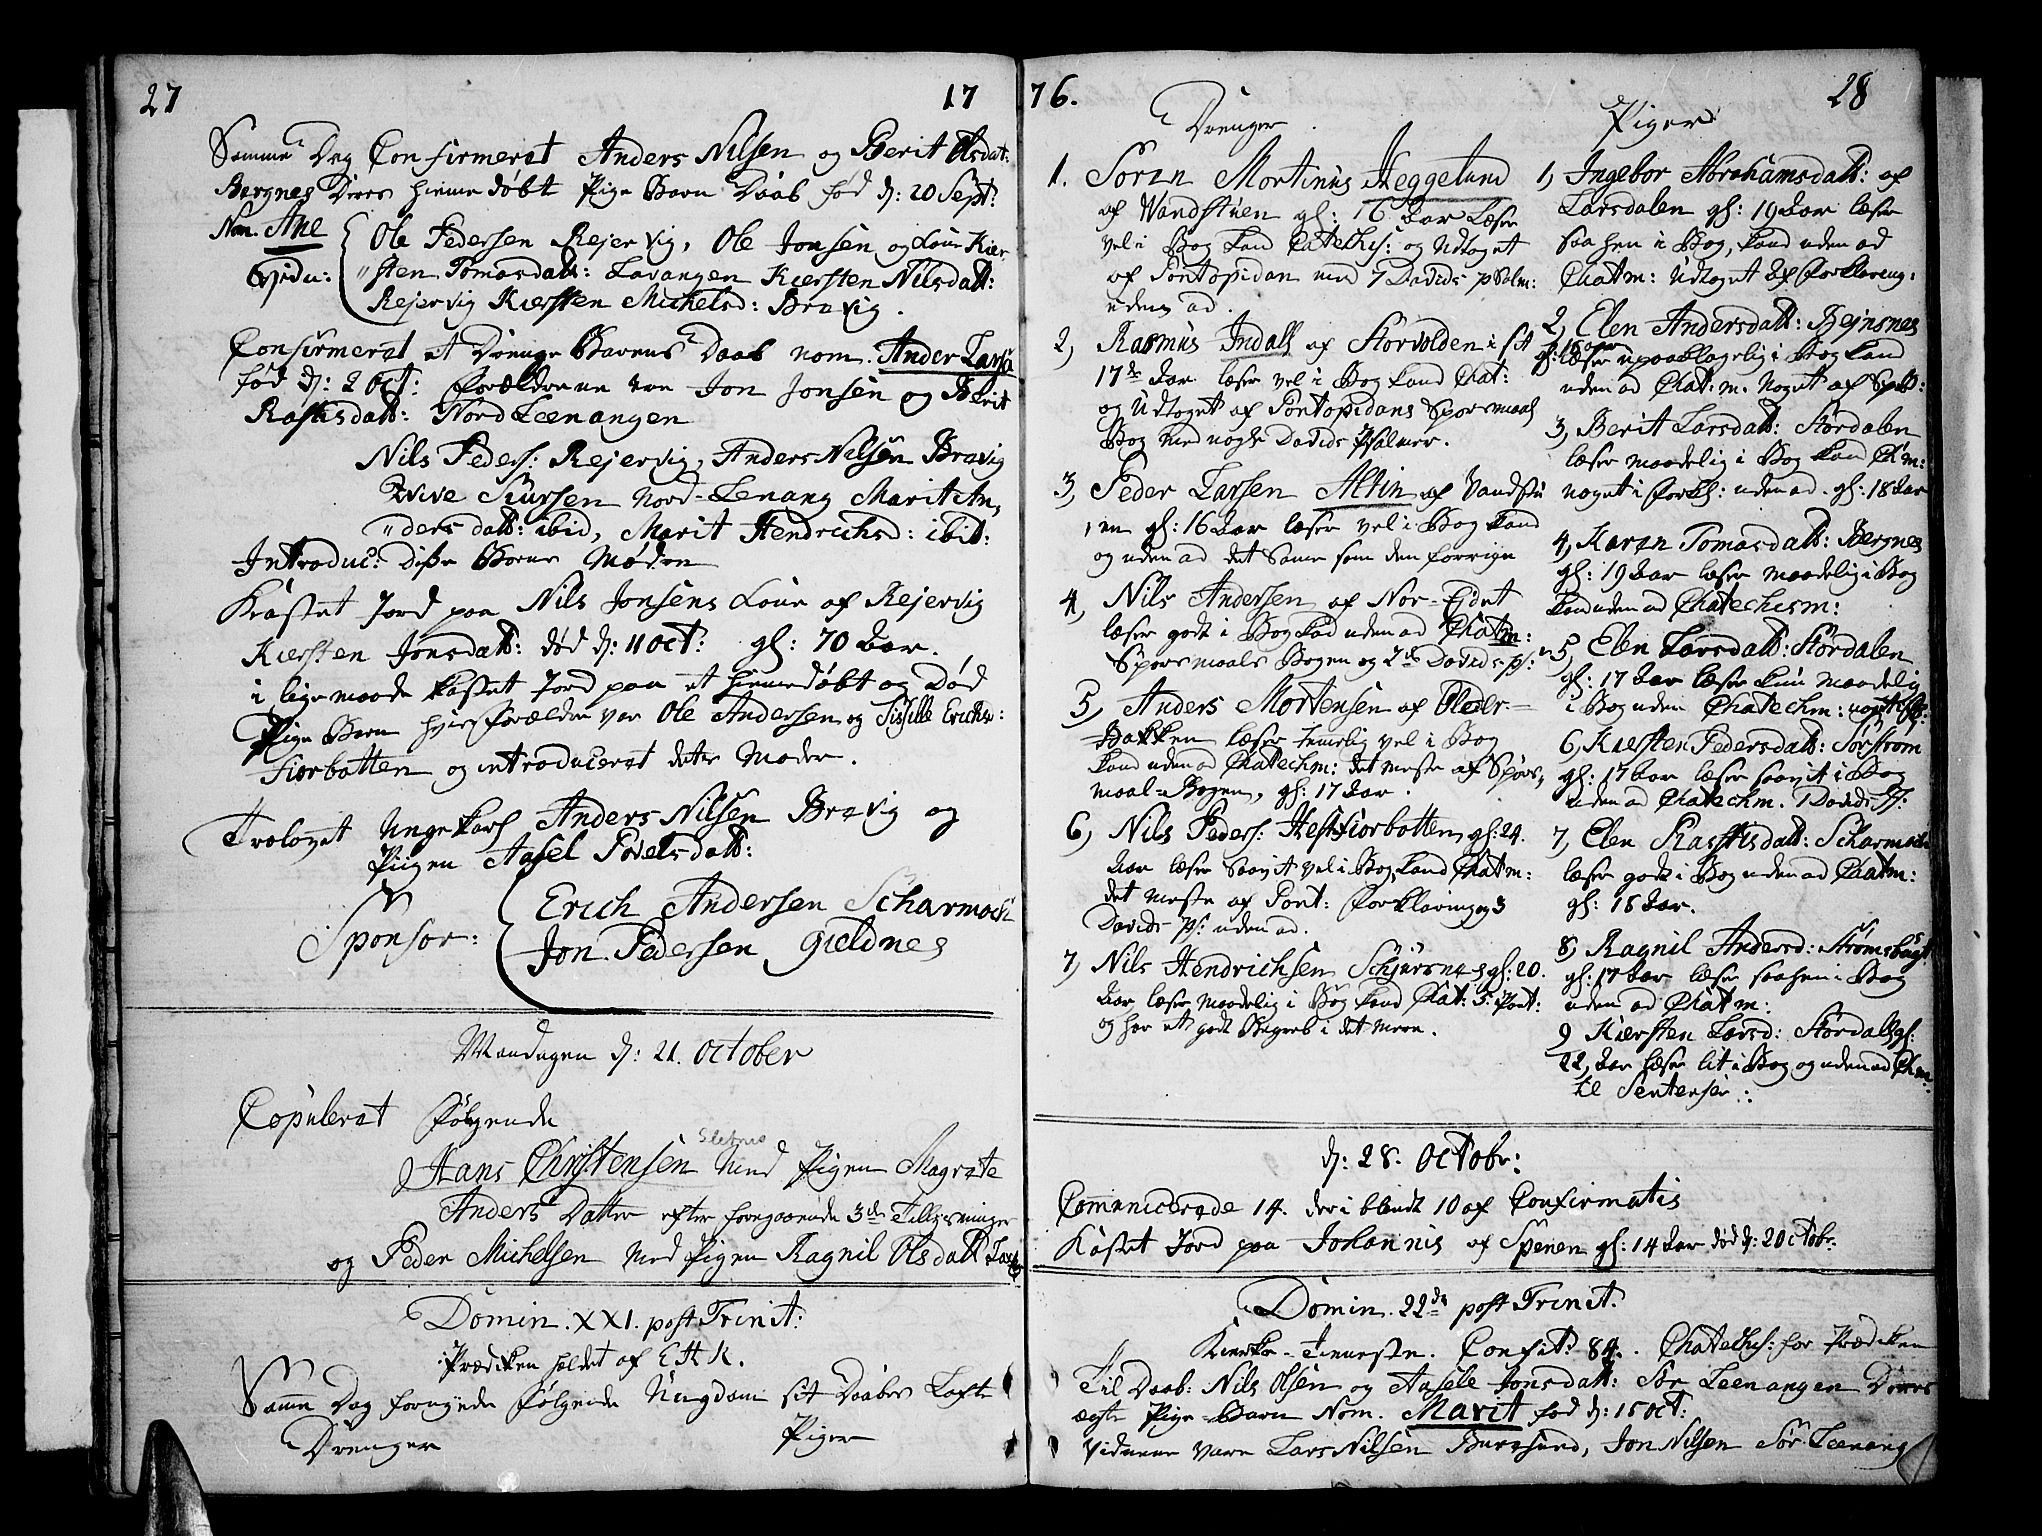 27
17
Samme Dag Confirmeret Anders Nilsen og Berit Olsdat:
Bergnes Deres hiemedøbt Pige Barn Daab fød d: 20 Sept:
Nom. Ane
Ole Pedersen Rejervig, Ole Jonsen og Lour Kier
Vidn:
"sten Tomasdatt: Lavangen Kiersten Nilsdatt:
Rejervig Kiersten Michelsd: Bravig.
Confirmeret et Drenge Barns Daab nom. Ander Lars
fød d: 2 Oct: Forældrene vare Jon Jonsen og Berit
Rasmusdatt: Nord Leenangen
Nils Peders: Rejervig, Anders Nilsen Bravig
Siursen Nord-Lenang Marit An,
"ders datt: ibid, Marit Hendrichsd: ibit:
Introduc: disse Børns Mødre
Kastet Jord paa Nils Jonsens Kone af Rejervig
Kiersten Jonsdatt: død d: 11 Oct: gl: 70 Aar.
i lige maade kastet Jord paa et hiemedøbt og Død
Pige Barn hvis Forældre var Ole Andersen og Sissille Erichs:
Fiorbotten og introduceret dets Moder.
Trolovet Unge Karl Anders Nilsen Bravig og
Pigen Aasel Povelsdatt:
Sponsor:
Erich Andersen Scharmoch
Jon Pedersen Gieldnes
Mandagen d: 21. October
Copuleret følgende
Sletnes
Hans Christensen med Pigen Magrete
Anders Datter efter foregaaende 3de Tillysninger
og Peder Michelsen med Pigen Ragnil Olsdatt
Domin. XXI. post Trinit:
Prædiken holdet af E H K.
Samme Dag fornyede følgende Ungdom sit Daabes Løfte
Drenger
Piger
76.
28
Drenger
1. Soræn Mortinus Heggelund
af Vandstuen gl: 16 Aar Læser
vel i Bog kand Catechis: og Udtoget
af Pontopidan med 7 Davids psalm:
uden ad.
2, Rasmus Indall af Storvolden i sit
17de Aar læser vel i Bog kand Chat:
og Udtoget af Pontopidans Spørsmaals
Bog med nogle Davids Psalmer.
3, Peder Larsen Altin af Vandstu
,,en gl: 16 Aar læser vel i Bog kand
og uden ad det Same som den forrige
4, Nils Andersen af Nor-Eidet
læser godt i Bog kand uden ad Chatm:
Spørsmaals Bogen og 2de Davids ps:
5, Anders Mortensen af Older-
Bakken læser temelig vel i Bog
kand uden ad Chatechm: det meste af Spørs,
maal-Bogen, gl: 17 Aar.
6, Nils Peders: Hestfiorbotten gl: 24.
Aar læser saavit vel i Bog kand Chatm:
det meste af Pont: Forklaring og 3
Davids ps: uden ad.
7, Nils Hendrichsen Schjursnes gl: 20.
Aar læser maadelig i Bog kand Chat: 5: Part:
og har et godt Begreb i det mere.
Piger
1, Ingebor Abrahamsdatt: af
Larsdalen gl: 19 Aar læser
saa hen i Bog, kand uden ad
Chatm: Udtoget af Forklaring:
2, Elen Andersdatt: Bejnsnes
gl: 18 Aar læser upaaklagelig i Bog kand
uden ad Chat: m. noget af Spb:
3, Berit Larsdatt: Stordalen
læser maadelig i Bog kand Chm:
noget i Forkl: uden ad. gl: 18 Aar
4, Karæn Tomasdatt: Bergnes
gl: 19 Aar læser maadelig i Bog
kand uden ad Chatechism:
5, Elen Larsdatt: Stordalen
gl: 17 Aar læser kun maadelig
i Bog uden Chatechm: noget
6, Kiersten Pedersdatt: Sørstrøm
gl: 17 Aar læser saavit i Bog
uden ad Chatechm. 1 Davids Ps:
7, Elen Rasmusdatt: Scharmoch
læser godt i Bog uden ad Chatm:
gl: 18 Aar.
8, Ragnil Andersd: Strømsbugt
gl: 17 Aar læser saa hen i Bog
uden ad Chatm:
9 Kiersten Larsd: Stordal gl:
22, Aar læser lit i Bog og uden ad Chm:
til Sentenser.
d: 28. Octobr:
Comunicerede 14. der i blandt 10 af Confirmatis
Kastet Jord paa Johannis af Spenen gl: 14 Aar død d: 20 Octobr:
Domin. 22de post Trinit:
Kirke-Tieneste. Confit: 84. Chatechis: for Prædiken
Til Daab: Nils Olsen og Aasele Jonsdatt: Sør Leenangen Deres
ægte Pige-Barn Nom. Marit fød d: 15 Oct:
Vidnene vare Lars Nilsen Buresund, Jon Nilsen Sør Leenang